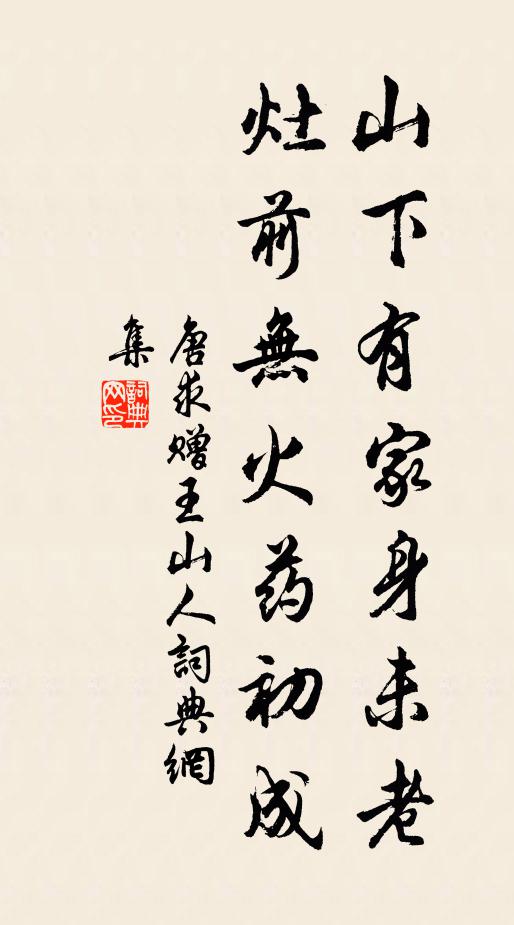 山下有家身未老
灶前無火药初成
唐求赠王山人詞典網
集
詞典
网印